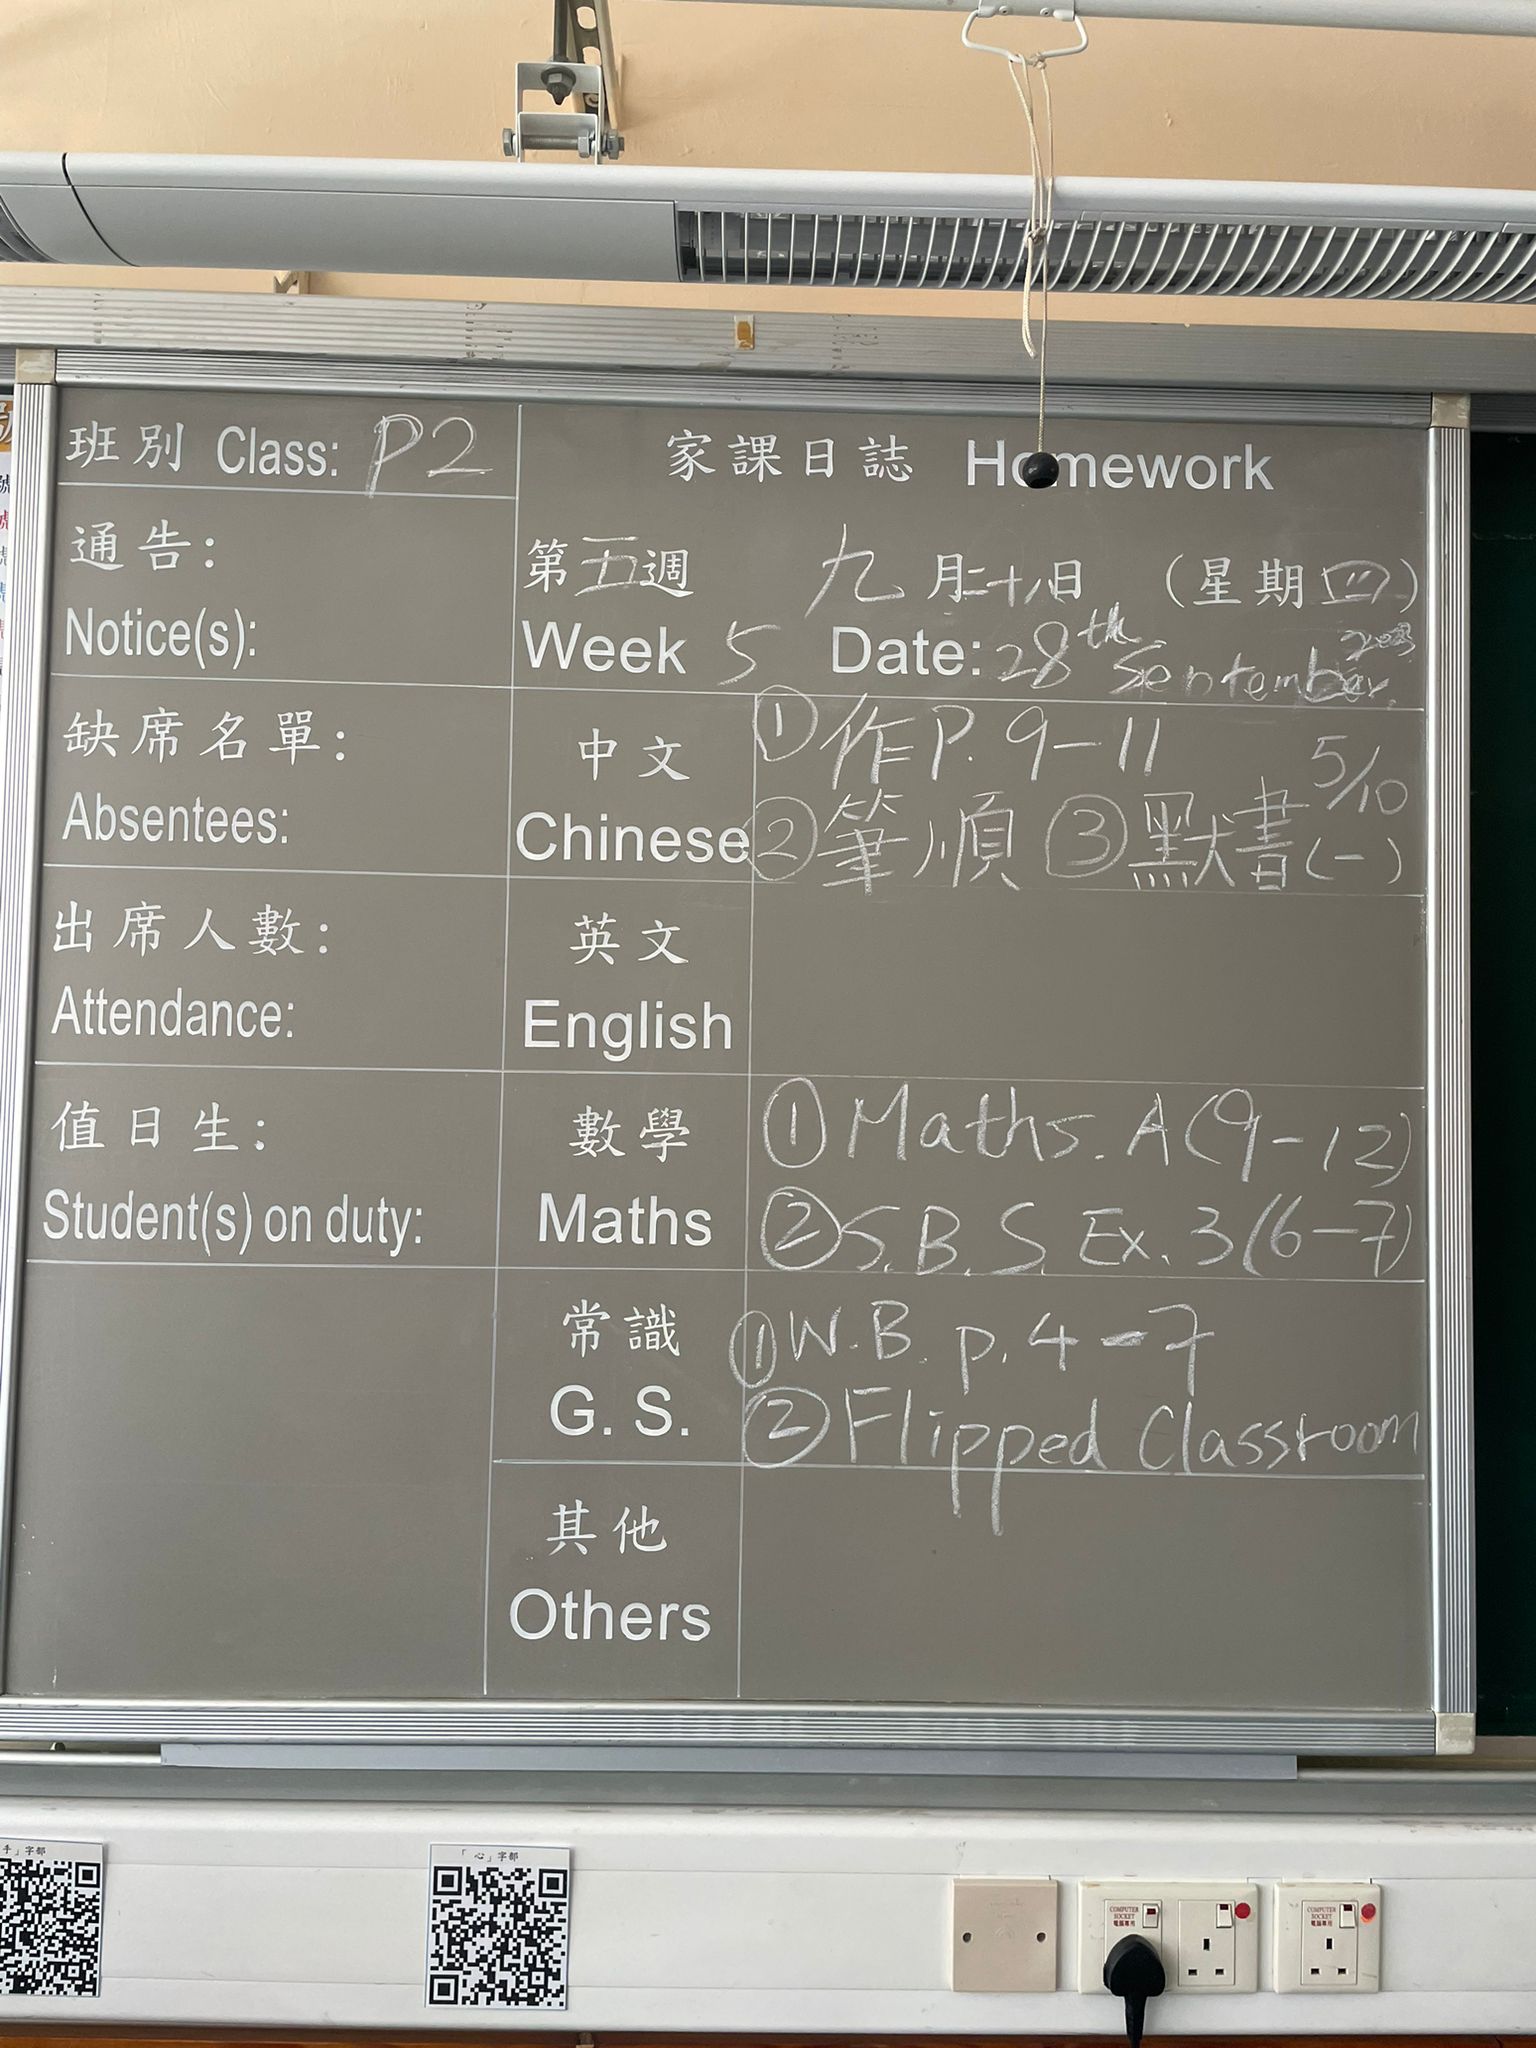 班別 Class: P2
家課日誌 Homework
通告:
Notice(s):
第五週 九月二十八日 (星期四)
Week 5 Date: 28th September 2023
缺席名單:
Absentees:
中文
Chinese
① 作 P. 9-11
② 筆順 ③ 默書(一) 5/10
出席人數:
Attendance:
英文
English
值日生:
Student(s) on duty:
數學
Maths
① Maths. A (9-12)
② S.B.S. Ex. 3 (6-7)
常識
G. S.
① W.B. p. 4-7
② Flipped Classroom
其他
Others
手」字部
「心」字部
COMPUTER SOCKET
電腦專用
COMPUTER SOCKET
電腦專用